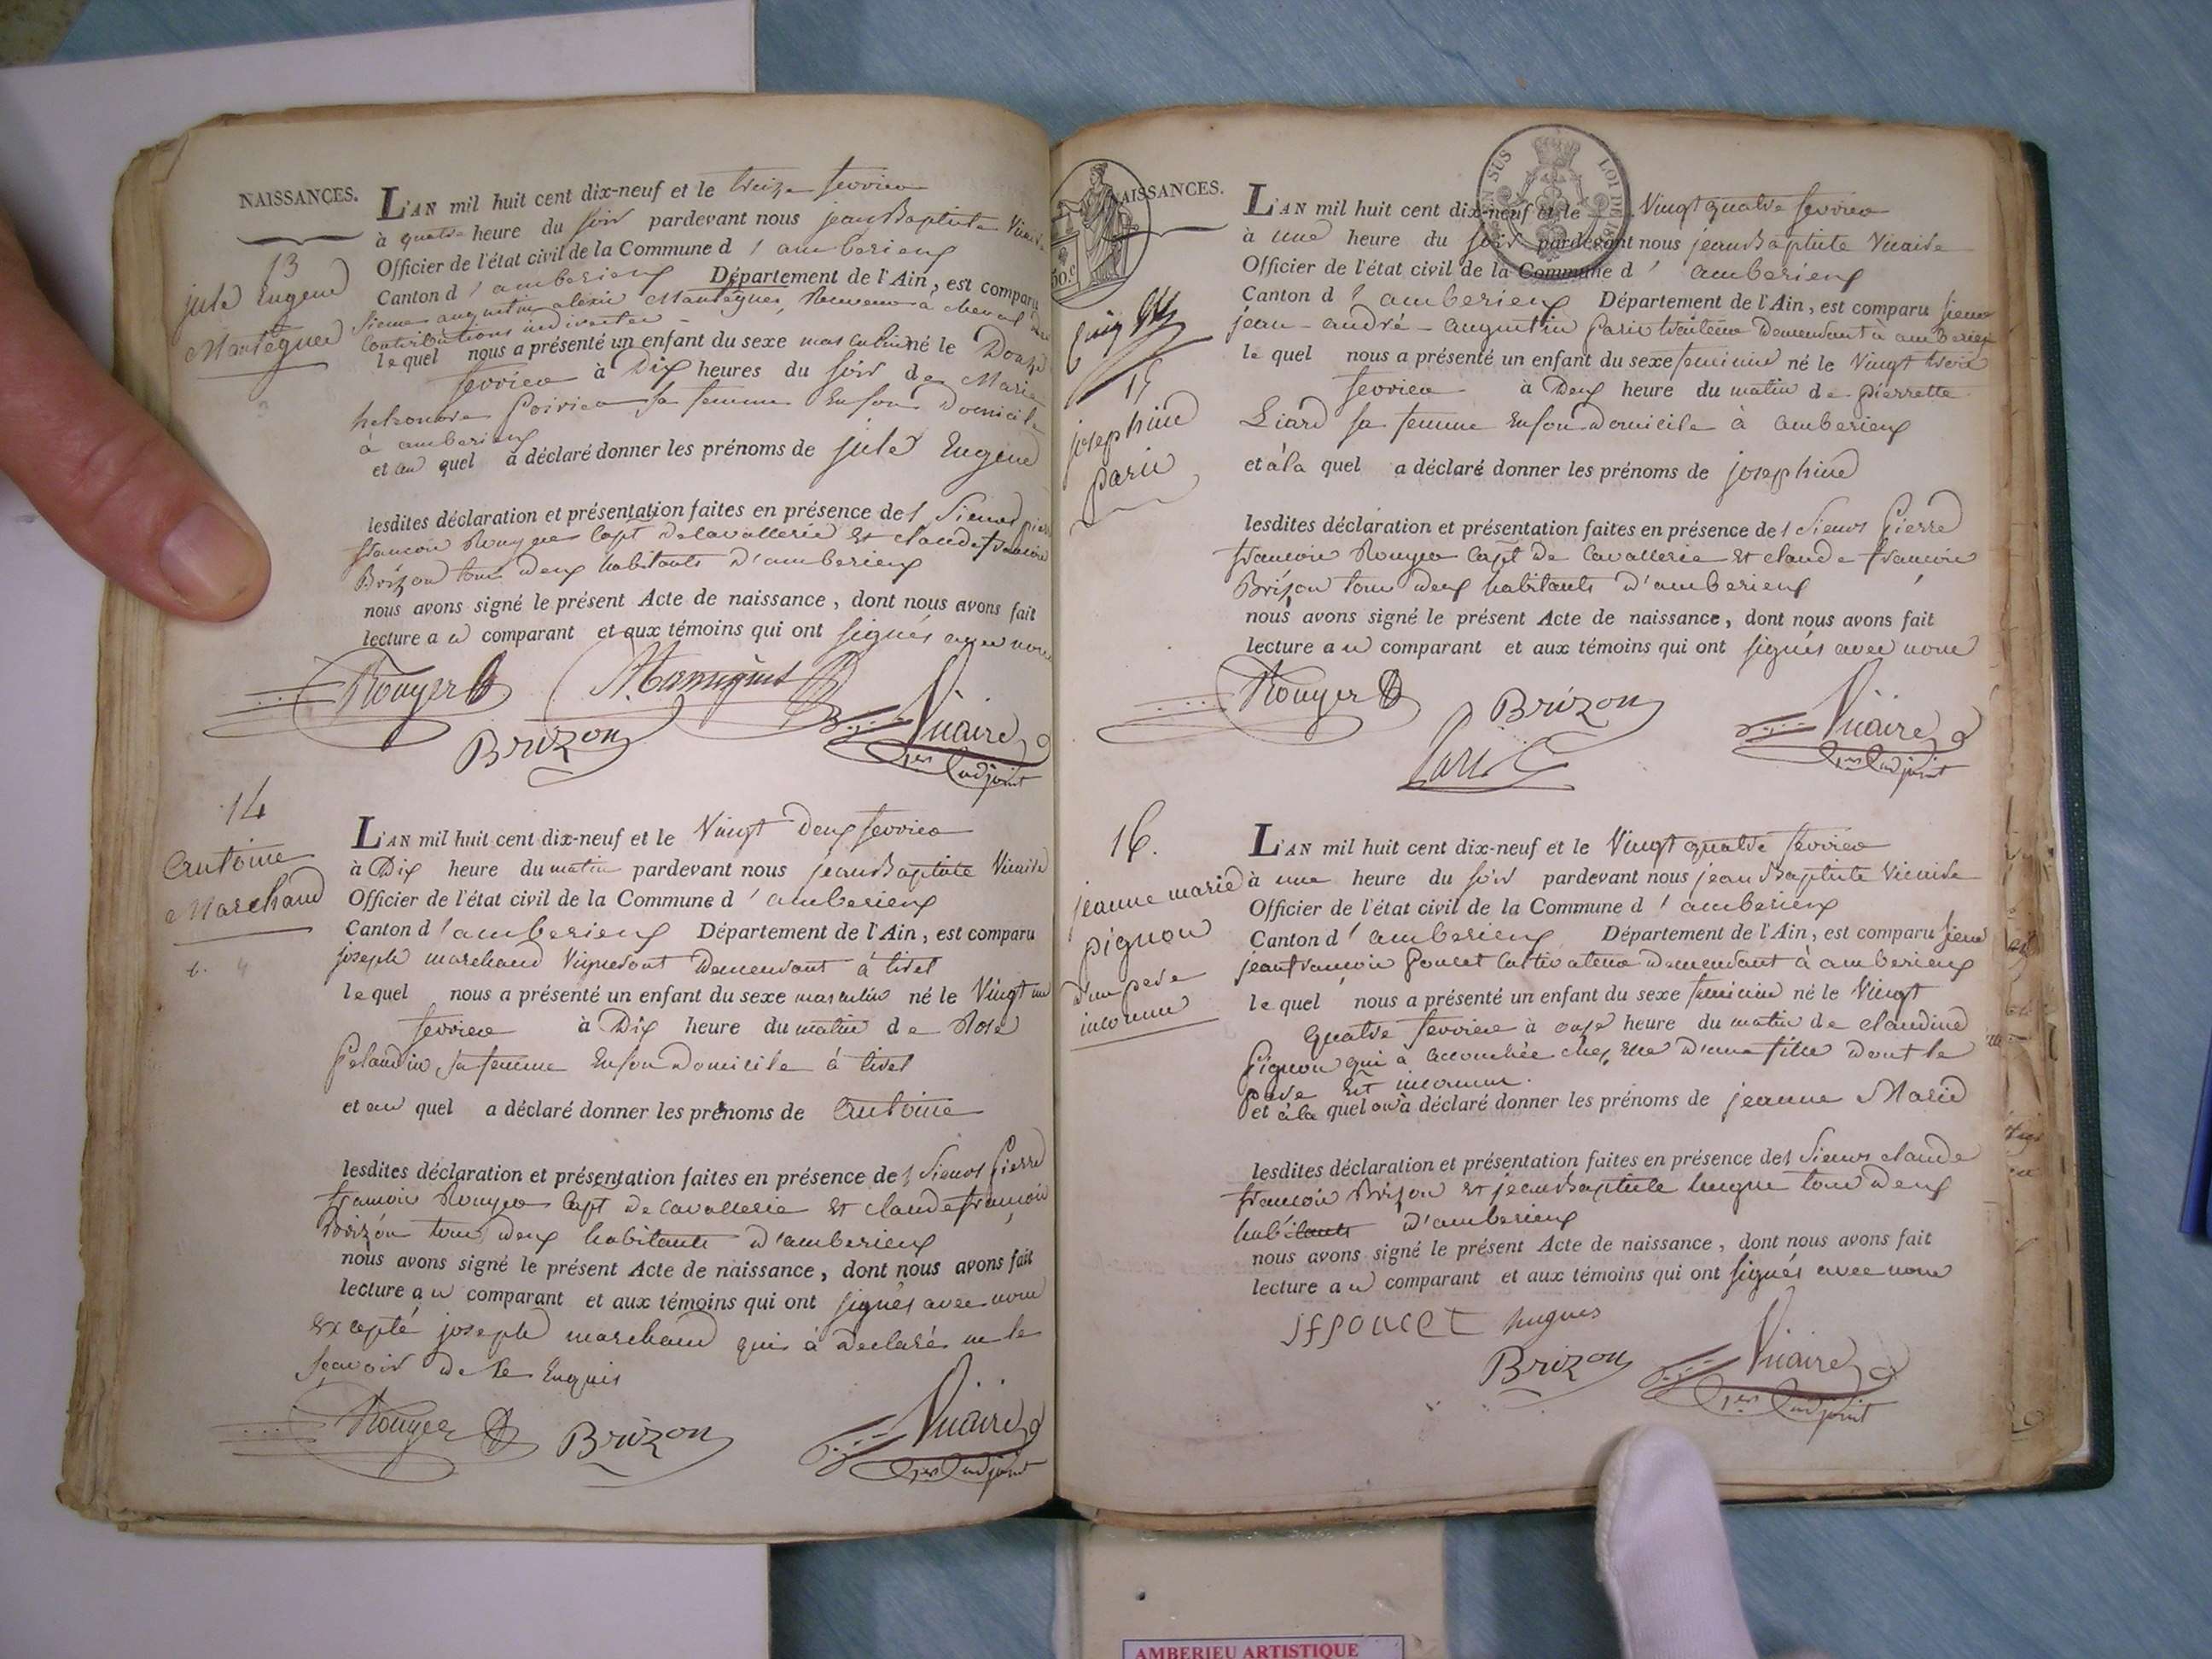 NAISSANCES.
13
jule Eugene
Montègue
L'AN mil huit cent dix-neuf et le treize fevrier
à quatre heure du soir pardevant nous jean Baptiste Vicaire
Officier de l'état civil de la Commune d'amberieux
Canton d'amberieux Département de l'Ain, est comparu
sieur augustin alexis receveur à cheval des
Contributions indirectes
le quel nous a présenté un enfant du sexe masculin né le Douze
fevrier à Dix heures du soir de Marie
Poirier sa femme En son Domicile
à amberieux
et au quel a déclaré donner les prénoms de jule Eugene
lesdites déclaration et présentation faites en présence des Sieurs pierre
francois Rouyer Capt de cavallerie et claude francois
Brizon tous deux habitants d'amberieux
nous avons signé le présent Acte de naissance, dont nous avons fait
lecture au comparant et aux témoins qui ont signés avec nous
Rouyer
Brizon
Vicaire
1er adjoint
14
Antoine
Marchand
L'AN mil huit cent dix-neuf et le Vingt deux fevrier
à Dix heure du matin pardevant nous jean Baptiste Vicaire
Officier de l'état civil de la Commune d'amberieux
Canton d'amberieux Département de l'Ain, est comparu
joseph marchand Vigneront Demeurant à tiret
le quel nous a présenté un enfant du sexe masculin né le Vingt un
fevrier à Dix heure du matin de Rose
Pelandin sa femme En son Domicile à tiret
et au quel a déclaré donner les prénoms de Antoine
lesdites déclaration et présentation faites en présence des Sieurs Pierre
francois Rouyer Capt de cavallerie et claude francois
Brizon tous deux habitants d'amberieux
nous avons signé le présent Acte de naissance, dont nous avons fait
lecture au comparant et aux témoins qui ont signés avec nous
excepté joseph marchand qui à declaré ne le
sçavoir de ce Enquis
Rouyer Brizon Vicaire
1er adjoint
NAISSANCES.
50 c.
LOI DE
15
josephine
paris
L'AN mil huit cent dix-neuf et le Vingt quatre fevrier
à une heure du soir pardevant nous jean Baptiste Vicaire
Officier de l'état civil de la Commune d'amberieux
Canton d'amberieux Département de l'Ain, est comparu sieur
jean-andré-augustin paris traiteur Demeurant à amberieux
le quel nous a présenté un enfant du sexe feminin né le Vingt trois
fevrier à Deux heure du matin de pierrette
Liard sa femme En son Domicile à amberieux
et à la quel a déclaré donner les prénoms de josephine
lesdites déclaration et présentation faites en présence des Sieurs Pierre
francois Rouyer Capt de Cavallerie et claude francois
Brizon tous deux habitants d'amberieux
nous avons signé le présent Acte de naissance, dont nous avons fait
lecture au comparant et aux témoins qui ont signés avec nous
Rouyer Brizon Vicaire
Paris 1er adjoint
16.
jeanne marie
pignon
d'un pere
inconnu
L'AN mil huit cent dix-neuf et le Vingt quatre fevrier
à une heure du soir pardevant nous jean Baptiste Vicaire
Officier de l'état civil de la Commune d'amberieux
Canton d'amberieux Département de l'Ain, est comparu sieur
jean francois Poncet Cultivateur Demeurant à amberieux
le quel nous a présenté un enfant du sexe feminin né le Vingt
quatre fevrier à onze heure du matin de claudine
Pignon qui à accouchée chez elle d'une fille dont le
pere est inconnu.
et à la quel on a déclaré donner les prénoms de jeanne Marie
lesdites déclaration et présentation faites en présence des Sieurs claude
francois Brizon et jean baptiste hugue tous deux
habitants d'amberieux
nous avons signé le présent Acte de naissance, dont nous avons fait
lecture au comparant et aux témoins qui ont signés avec nous
jfponcet hugues
Brizon Vicaire
1er adjoint
AMBERIEU ARTISTIQUE